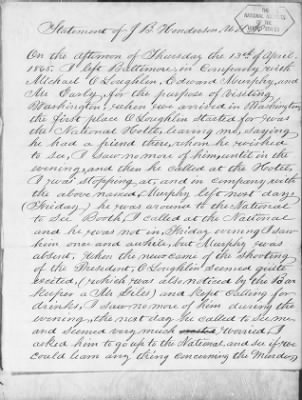 THE NATIONAL ARCHIVES OF THE UNITED STATES
Statement of J. B. Henderson
On the afternoon of Thursday the 13th of April
1865. I left Baltimore, in Company with
Michael O'Loughlin, Edward Murphy, and
Mr Early, for the purpose of visiting
Washington, when we arrived in Washington
the first place O'Loughlin started for was
the National Hotel, leaving me, saying
he had a friend there, whom he wished
to see, I saw no more of him, until in the
evening, and then he called at the Hotel,
I was stopping at, and in company with
the above named, Murphy left next day
(Friday,) he was around to the National
to see Booth, I called at the National
and he was not in, Friday evening I saw
him once and awhile, but Murphy was
absent, when the news came of the shooting
of the President, O'Loughlin seemed quite
excited, (which was also noticed by the Bar
keeper a Mr Liles) and kept calling for
drinks, I saw no more of him during the
evening, the next day he called to see me
and seemed very much worried, I
asked him to go up to the National and see if we
could learn any thing concerning the Murder